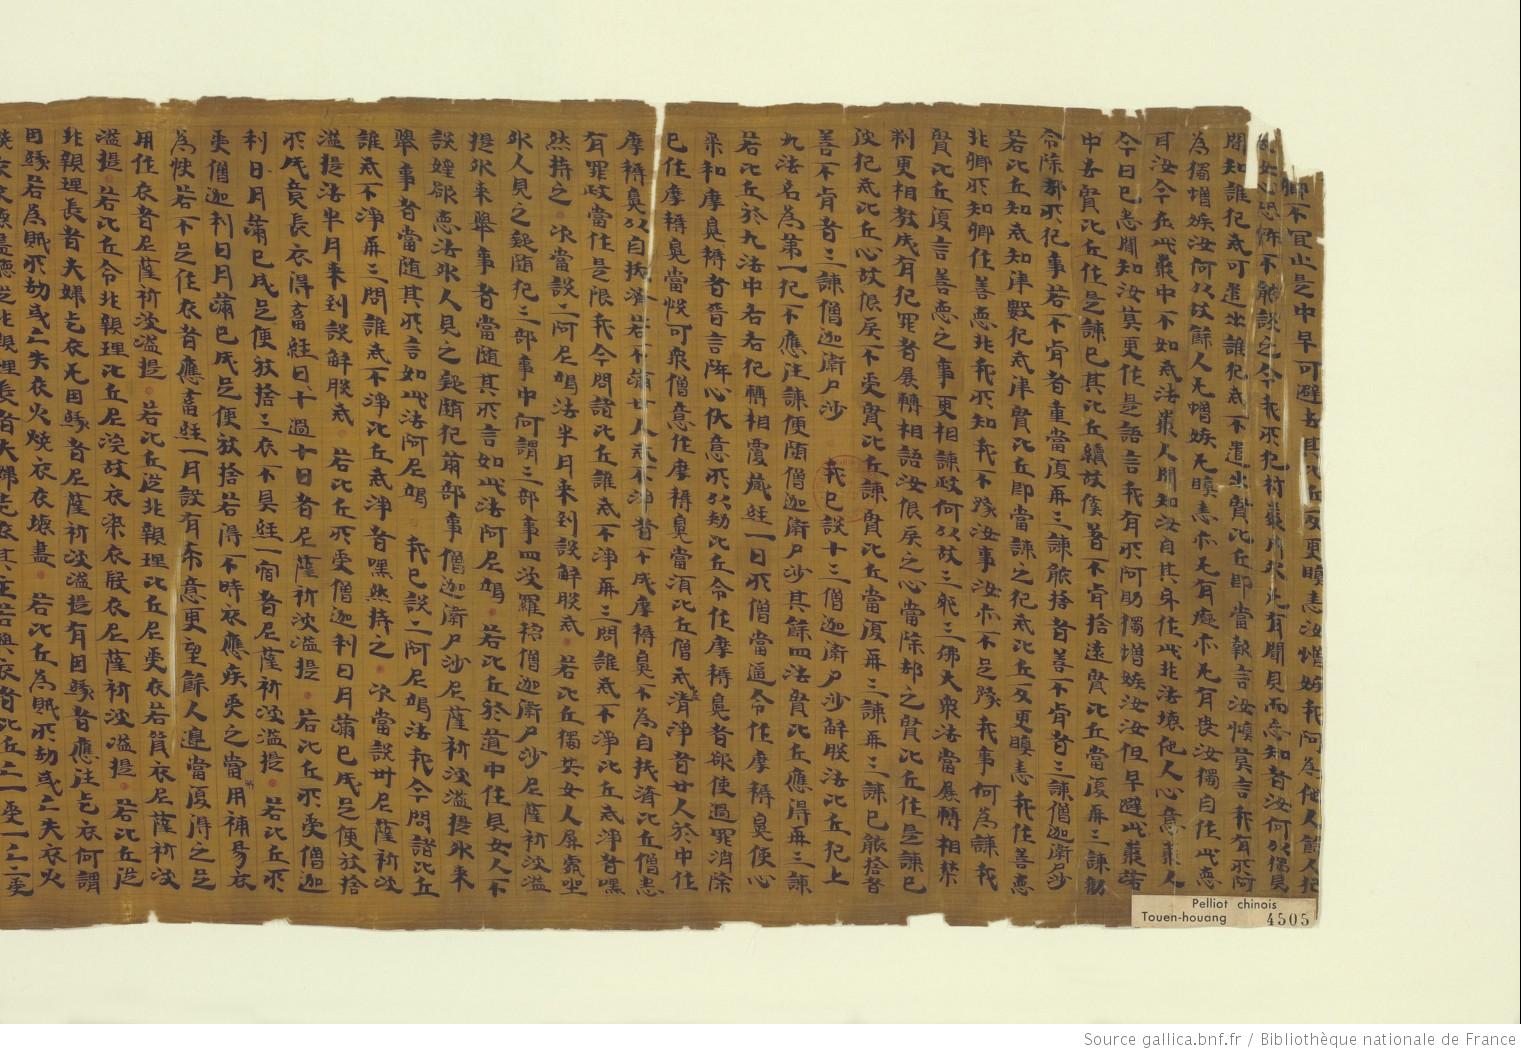 聞知誰犯戒可遣出誰犯戒不遣出賢比丘即當報言汝慎莫言我有所阿
為獨憎嫉汝何以故餘人无憎嫉无瞋恚亦无有癡亦无有畏汝獨自作此惡
耳汝今在此叢中不如戒法叢人聞知汝自其身作此非法壞他人心意叢人
今日已悉聞知汝莫更作是語言我有所阿助獨增嫉汝汝但早避此叢諾
中去賢比丘作是諫已其比丘續故傒著不肯捨遠賢比丘當復再三諫勸
令除鄣所犯事若不肯者重當復再三諫能捨者善不肯者三諫僧迦衛尸沙
若比丘知戒知津數犯戒津賢比丘即當諫之犯戒比丘反更瞋恚我作善惡
非卿所知卿作善惡非我所知我不豫汝事汝亦不足豫我事何為諫我
賢比丘復言善惡之事更相諫政何以故三界三佛大衆法當展轉相禁
制更相教戒有犯罪者展轉相語汝恨戾之心當除郤之賢比丘作是諫已
彼犯戒比丘心故恨戾不受賢比丘諫賢比丘當復再三諫再三諫已能捨者
善不肯者三諫僧迦衛尸沙 我已談十三僧迦衛尸沙解脫法比丘犯上
九法名為第一犯不應注諫便墮僧迦衛尸沙其餘四法賢比丘應得再三諫
若比丘於九法中若右犯轉相覆藏經一日所僧當逼令作摩耨㝹使心
柔和摩㝹耨者晉言降心伏意所以勑比丘令作摩耨㝹者欲使過罪消除
已作摩耨㝹當悞可衆僧意作摩耨㝹當須比丘僧戒清淨者廿人於中作
摩耨㝹以自扶濟若不滿廿人戒不淨者不成摩耨㝹不為自扶濟比丘僧悉
有罪故當作是限我今問諸比丘誰戒不淨再三問誰戒不淨比丘戒淨者嘿
然持之 次當談二阿尼竭法半月來到說解脫戒 若比丘獨共女人屏處坐
氷人見之疑隨犯三部事中何謂三部事四波羅移僧迦衛尸沙尼薩祈波溢
提氷來舉事者當隨其所言如此法阿尼竭 若比丘於道中住見女人不
談婬欲惡法氷人見之疑隨犯前部事僧迦衛尸沙尼薩祈波溢提氷來
舉事者當隨其所言如此法阿尼竭 我已談二阿尼竭法我今問諸比丘
誰戒不淨再三問誰戒不淨比丘戒淨者嘿然持之 次當談卅尼薩祈波
溢提法半月來到談解脫戒 若比丘所受僧迦利日月滿已成足便放捨
所成竟長衣得畜經日十過十日者尼薩祈波溢提 若比丘所受僧迦
利日月滿已成足便放捨三衣不具經一宿者尼薩祈波溢提 若比丘所
受僧迦利日月滿已成足便放捨若得不時衣應疾受之當用補昜衣
為使若不足作衣者應畜經一月設有希意更望餘人邊當復得之足
用作衣者尼薩祈波溢提 若比丘從非親理比丘尼受衣若貿衣尼薩祈波
溢提 若比丘令非親理比丘尼浣故衣染衣㲉衣尼薩祈波溢提 若比丘從
非親理長者夫婦乞衣无因緣者尼薩祈波溢提有因緣者應注乞衣何謂
因緣若為賊所劫或亡失衣火燒衣衣壞盡 若比丘為賊所劫或亡失衣火
Pelliot chinois
Touen-houang 4505
Source gallica.bnf.fr / Bibliothèque nationale de France